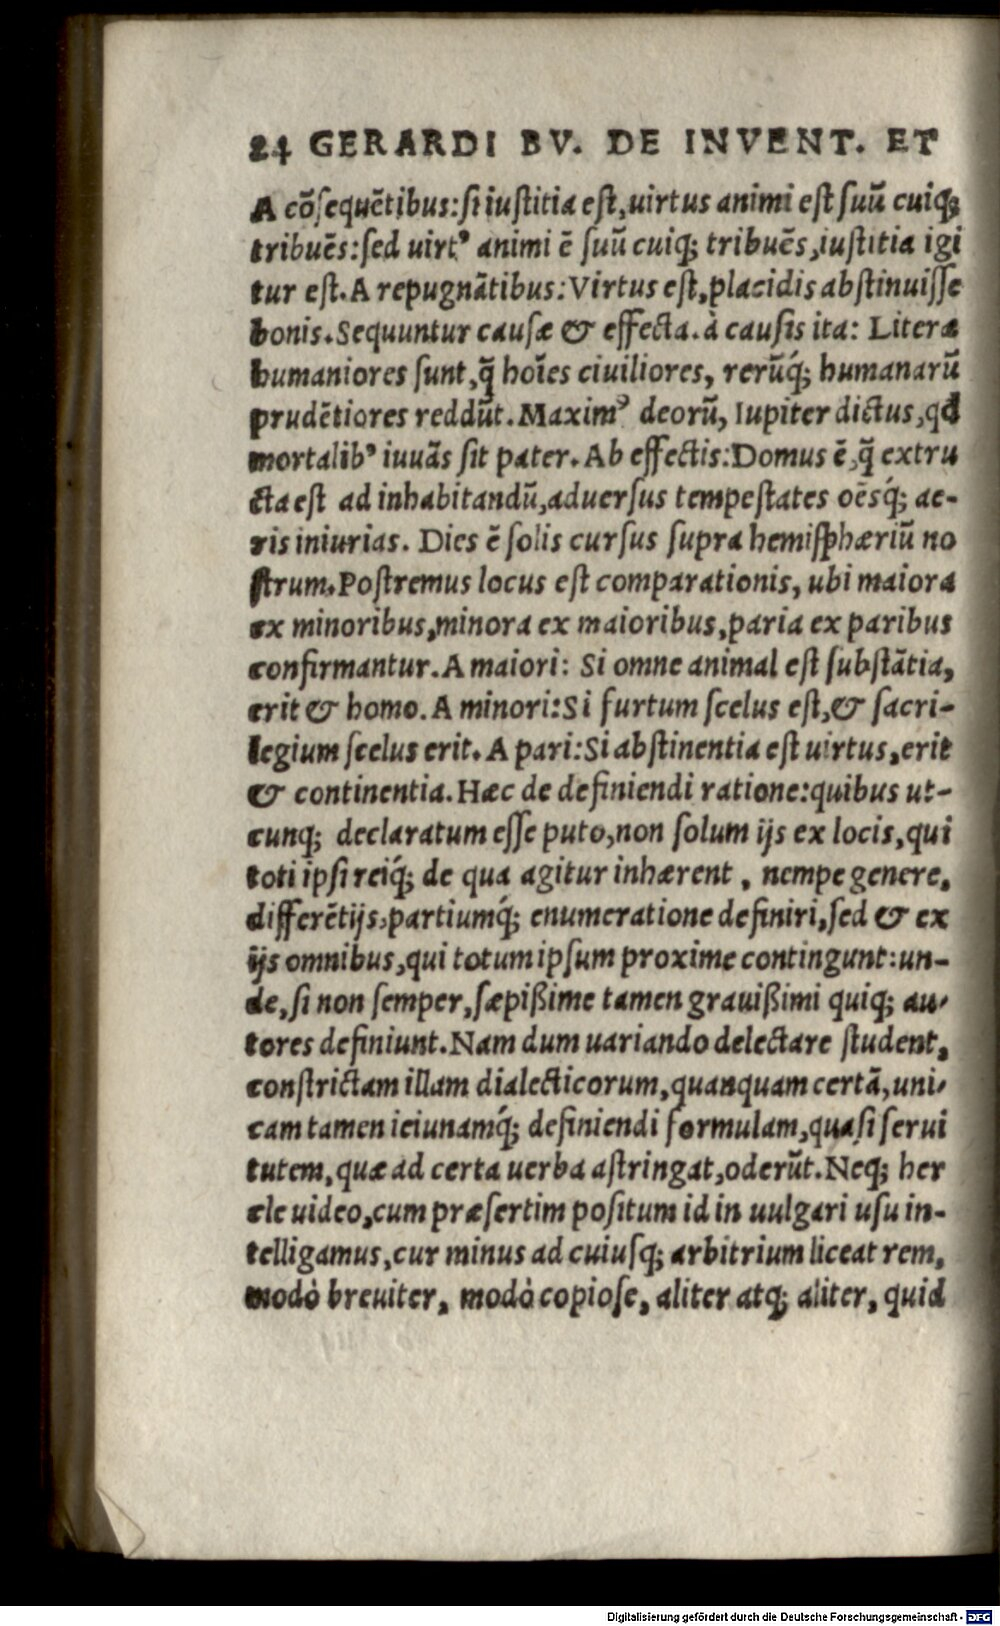 24 GERARDI BV. DE INVENT. ET
A cõsequẽtibus: si iustitia est, uirtus animi est suũ cuiq;
tribuẽs: sed uirt⁹ animi ẽ suũ cuiq; tribuẽs, iustitia igi
tur est. A repugnãtibus: Virtus est, placidis abstinuisse
bonis. Sequuntur causæ & effecta. à causis ita: Literæ
humaniores sunt, q̃ hoĩes ciuiliores, rerũq́; humanarũ
prudẽtiores reddũt. Maxim⁹ deorũ, Iupiter dictus, qd
mortalib⁹ iuuãs sit pater. Ab effectis: Domus ẽ, q̃ extru
cta est ad inhabitandũ, aduersus tempestates oẽsq́; ae-
ris iniurias. Dies ẽ solis cursus supra hemisphæriũ no
strum. Postremus locus est comparationis, ubi maiora
ex minoribus, minora ex maioribus, paria ex paribus
confirmantur. A maiori: Si omne animal est substãtia,
erit & homo. A minori: Si furtum scelus est, & sacri-
legium scelus erit. A pari: Si abstinentia est uirtus, erit
& continentia. Hæc de definiendi ratione: quibus ut-
cunq; declaratum esse puto, non solum ijs ex locis, qui
toti ipsi reiq́; de qua agitur inhærent, nempe genere,
differẽtijs, partiumq́; enumeratione definiri, sed & ex
ijs omnibus, qui totum ipsum proxime contingunt: un-
de, si non semper, sæpißime tamen grauißimi quiq; au-
tores definiunt. Nam dum uariando delectare student,
constrictam illam dialecticorum, quanquam certã, uni-
cam tamen ieiunamq́; definiendi formulam, quasi serui
tutem, quæ ad certa uerba astringat, oderũt. Neq; her
cle uideo, cum præsertim positum id in uulgari usu in-
telligamus, cur minus ad cuiusq; arbitrium liceat rem,
modò breuiter, modò copiose, aliter atq; aliter, quid
Digitalisierung gefördert durch die Deutsche Forschungsgemeinschaft - DFG